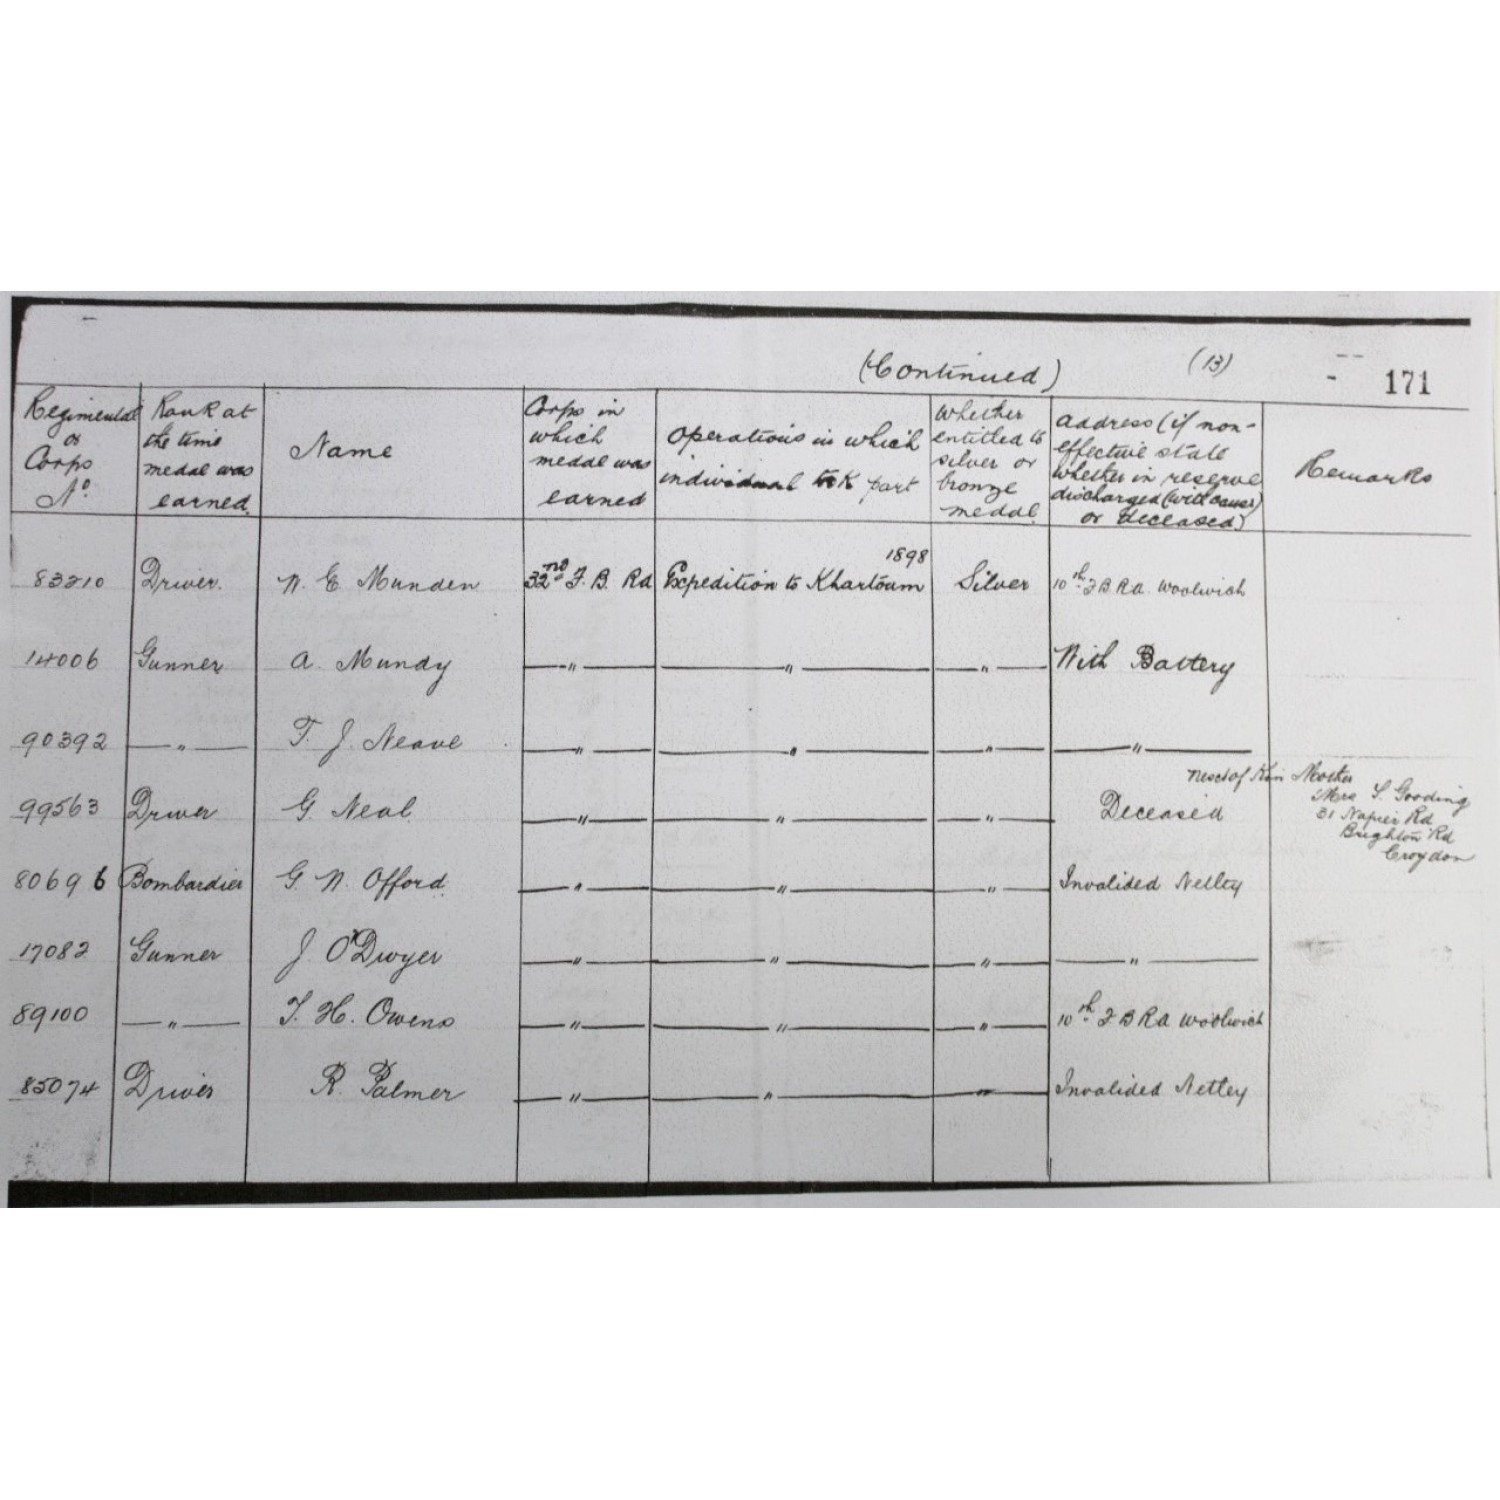 (Continued) (13) 171
Regimental or Corps No. | Rank at the time medal was earned. | Name | Corps in which medal was earned | Operations in which individual took part | Whether entitled to silver or bronze medal. | Address (if non-effective state whether in reserve discharged (with cause) or deceased) | Remarks
83210 Driver. W. E. Munden 32nd F. B. RA Expedition to Khartoum 1898 Silver 10th F B R A. Woolwich
14006 Gunner A. Mundy — " — — " — — " — With Battery
90392 — " — T. J. Neave — " — — " — — " — — " —
99563 Driver G Neal — " — — " — — " — Deceased Next of Kin Mother
Mrs S. Gooding
31 Napier Rd
Brighton Rd
Croydon
80696 Bombardier G W. Offord. — " — — " — — " — Invalided Netley
17082 Gunner J. O'Dwyer — " — — " — — " — — " —
89100 — " — T. H. Owens — " — — " — — " — 10th F B R A Woolwich
85074 Driver R. Palmer — " — — " — — " — Invalided Netley